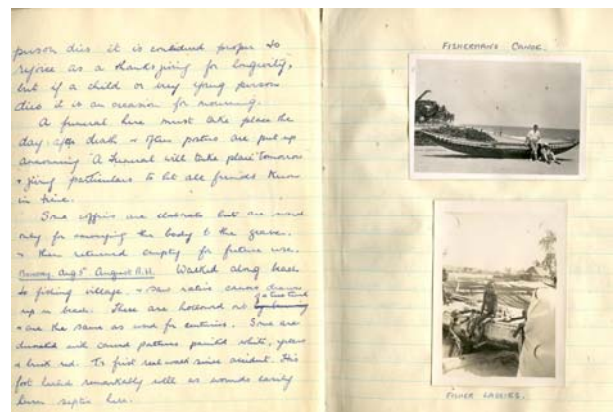 person dies it is considered proper to
rejoice as a thanksgiving for longevity,
but if a child or very young person
dies it is an occasion for mourning.
A funeral here must take place the
day after death & often posters are put up
announcing "A Funeral will take place tomorrow"
& giving particulars to let all friends know
in time.
Some coffins are elaborate but are used
only for conveying the body to the grave.
& then returned empty for future use.
Monday Aug 5th August B.H. Walked along beach
to fishing village, & saw native canoes drawn
up on beach. These are hollowed out by burning of a tree trunk
& are the same as used for centuries. Some are
decorated with carved patterns painted white, green
& brick red. T's first real walk since accident. His
foot healed remarkably well as wounds easily
turn septic here.
FISHERMAN'S CANOE.
FISHER LASSIES.